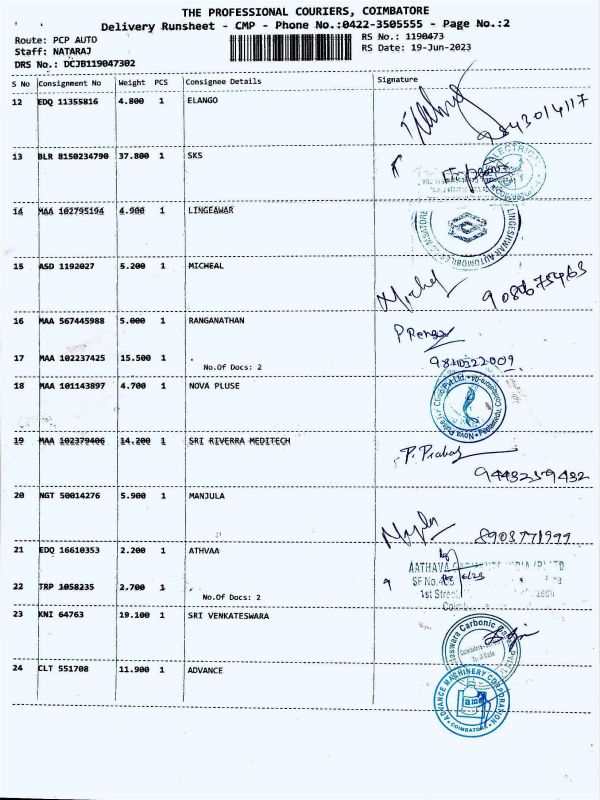 THE PROFESSIONAL COURIERS, COIMBATORE
Delivery Runsheet - CMP - Phone No.:0422-3505555 - Page No.:2
Route: PCP AUTO
RS No.: 1190473
Staff: NATARAJ
RS Date: 19-Jun-2023
DRS No.: DCJB119047302
S No Consignment No Weight PCS Consignee Details Signature
12 EDQ 11355816 4.800 1 ELANGO
9843014117
13 BLR 8150234790 37.800 1 SKS
ELECTRICAL
14 MAA 102795194 4.900 1 LINGEAWAR
LINGESHWAR AUTOMOBILES
15 ASD 1192027 5.200 1 MICHEAL
Michel
16 MAA 567445988 5.000 1 RANGANATHAN
17 MAA 102237425 15.500 1 .
No.Of Docs: 2
18 MAA 101143897 4.700 1 NOVA PLUSE
19 MAA 102379406 14.200 1 SRI RIVERRA MEDITECH
P. Prabas
9443259432
20 NGT 50014276 5.900 1 MANJULA
8903771999
21 EDQ 16610353 2.200 1 ATHVAA
22 TRP 1058235 2.700 1 .
No.Of Docs: 2
SF No.
1st Street
23 KNI 64763 19.100 1 SRI VENKATESWARA
Carbonic
24 CLT 551708 11.900 1 ADVANCE
ADVANCE MACHINERY CORPORATION
COIMBATORE